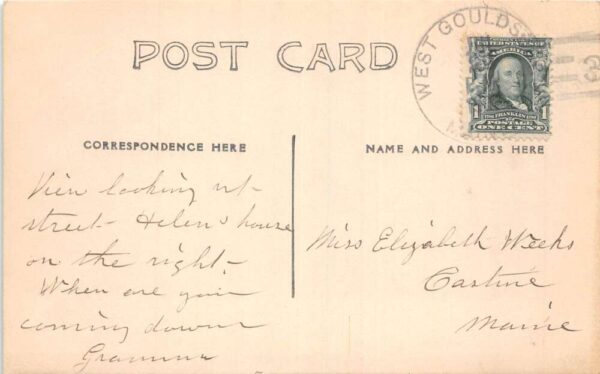 POST CARD
WEST GOULDS
UNITED STATES OF
AMERICA
1 FRANKLIN 1
POSTAGE
ONE CENT
3
CORRESPONDENCE HERE
NAME AND ADDRESS HERE
View looking up
street - Helen's house
on the right -
When are you
coming down
Gramma
Miss Elizabeth Weeks
Castine
Maine